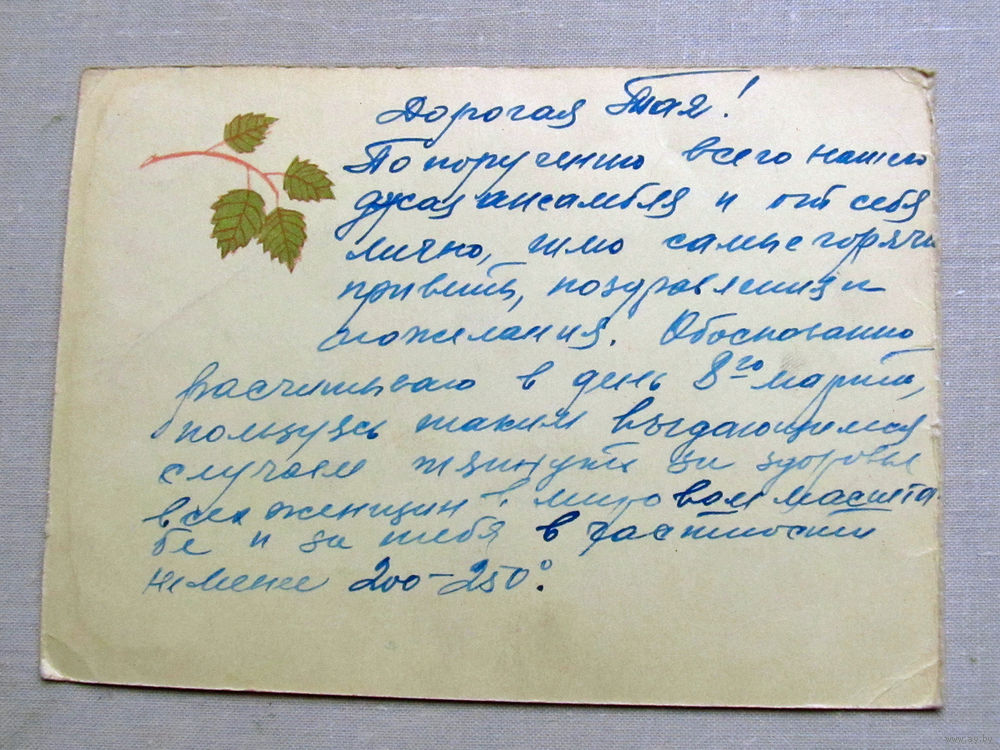 Дорогая Тая!
По поручению всего нашего
ансамбля и от себя
лично, шлю самые горячи
приветы, поздравления и
пожелания. Обоснованно
расчитываю в день 8го марта,
пользуясь таким выдающимся
случаем за здоровье
всех женщин в мировом масшта
бе и за тебя в частности
не менее 200-250°.
www.ay.by